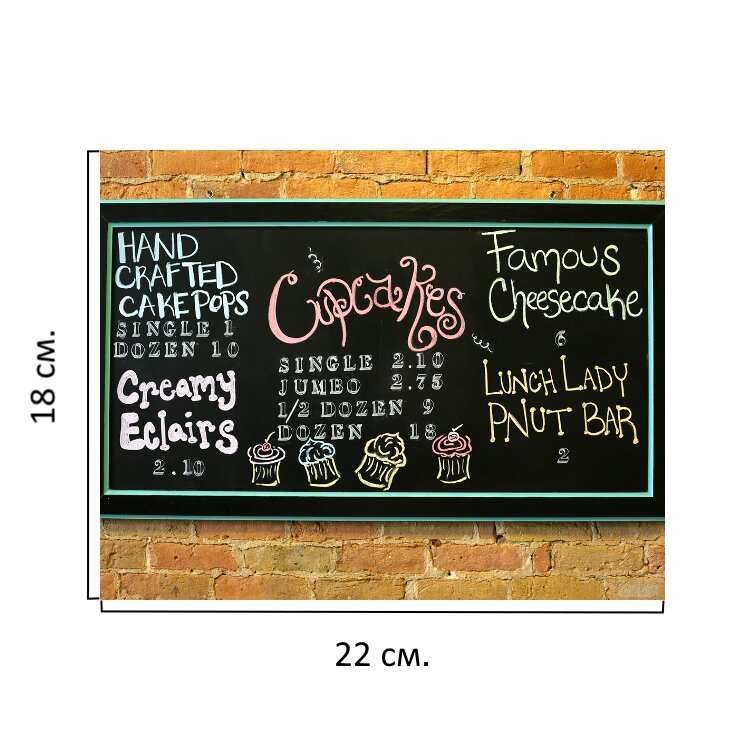 HAND
CRAFTED
CAKEPOPS
SINGLE 1
DOZEN 10
Creamy
Eclairs
2.10
Cupcakes
SINGLE 2.10
JUMBO 2.75
1/2 DOZEN 9
DOZEN 18
Famous
Cheesecake
6
LUNCH LADY
PNUT BAR
2
18 см.
22 см.